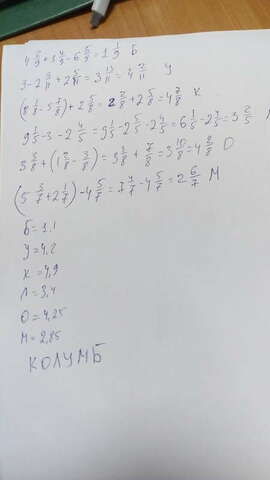 4 5/9 + 3 4/9 - 6 8/9 = 1 1/9 Б
3 - 2 8/11 + 2 5/11 = 3 13/11 = 4 2/11 У
(8 1/8 - 5 7/8) + 2 5/8 = 2 2/8 + 2 5/8 = 4 7/8 К
9 1/5 - 3 - 2 4/5 = 9 1/5 - 2 5/5 - 2 4/5 = 6 1/5 - 2 4/5 = 3 2/5 Л
3 3/8 + (1 2/8 - 3/8) = 3 3/8 + 7/8 = 3 10/8 = 4 2/8 О
(5 3/7 + 2 1/7) - 4 5/7 = 7 4/7 - 4 5/7 = 2 6/7 М
Б = 3,1
У = 4,2
К = 4,9
Л = 3,4
О = 4,25
М = 2,85
КОЛУМБ